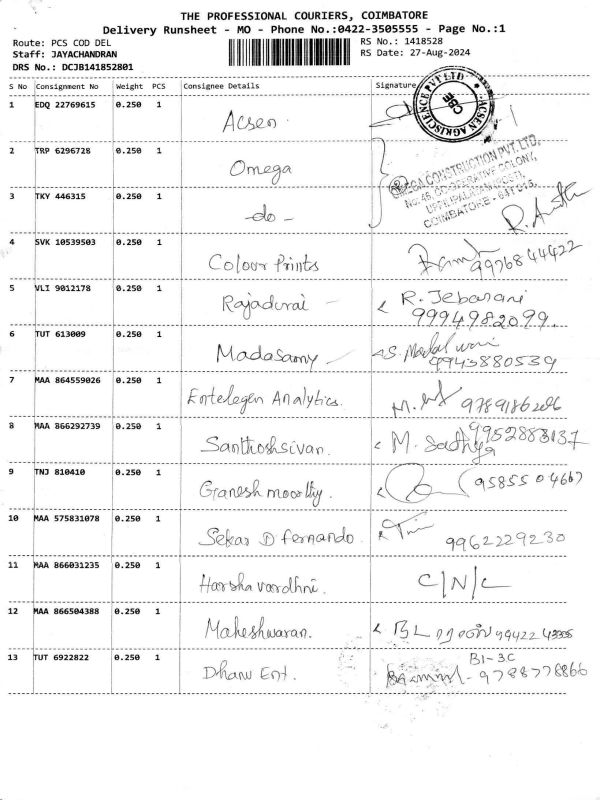 THE PROFESSIONAL COURIERS, COIMBATORE
Delivery Runsheet - MO - Phone No.:0422-3505555 - Page No.:1
Route: PCS COD DEL
RS No.: 1418528
Staff: JAYACHANDRAN
RS Date: 27-Aug-2024
DRS No.: DCJB141852801
S No Consignment No Weight PCS Consignee Details Signature
1 EDQ 22769615 0.250 1 Acsen
ACSEN AGRISCIENCE PVT LTD CBE
2 TRP 6296728 0.250 1 Omega
OMEGA CONSTRUCTION PVT. LTD.
CO-OPERATIVE COLONY,
UPPILIPALAYAM (POST),
COIMBATORE - 641 015.
3 TKY 446315 0.250 1 -do-
4 SVK 10539503 0.250 1 Colour Prints 9976844422
5 VLI 9012178 0.250 1 Rajadurai R. Jebarani
9994982099
6 TUT 613009 0.250 1 Madasamy
9943880539
7 MAA 864559026 0.250 1 Entelegen Analytics.
8 MAA 866292739 0.250 1 Santhoshsivan. M. Sadhya
9 TNJ 810410 0.250 1 Ganesh moorthy 9585504667
10 MAA 575831078 0.250 1 Sekar D fernando.
9962229230
11 MAA 866031235 0.250 1 Harsha vardhni. C/N/C
12 MAA 866504388 0.250 1 Maheshwaran.
13 TUT 6922822 0.250 1 Dhanu Ent. B1-3C
9788778866